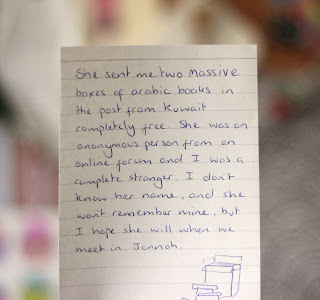 She sent me two massive
boxes of arabic books in
the post from Kuwait
completely free. She was an
anonymous person from an
online forum and I was a
complete stranger. I don't
know her name, and she
wont remember mine, but
I hope she will when we
meet in Jannah.